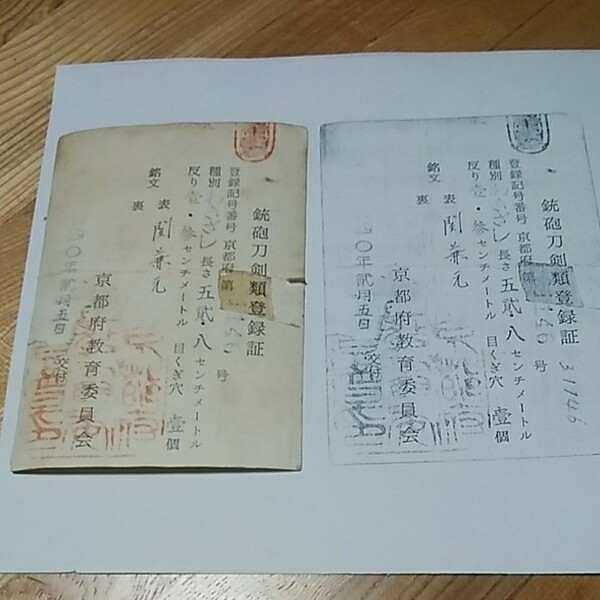 銃砲刀剣類登録証
登録記号番号 京都府 第 146 号
種別 わきざし 長さ 五貳・八 センチメートル
反り 壹・参 センチメートル 目くぎ穴 壹 個
銘文 表 関兼元
裏
京都府教育委員会
〇年貳月五日 交付
銃砲刀剣類登録証
31146
登録記号番号 京都府 第 146 号
種別 わきざし 長さ 五貳・八 センチメートル
反り 壹・参 センチメートル 目くぎ穴 壹 個
銘文 表 関兼元
裏
京都府教育委員会
〇年貳月五日 交付